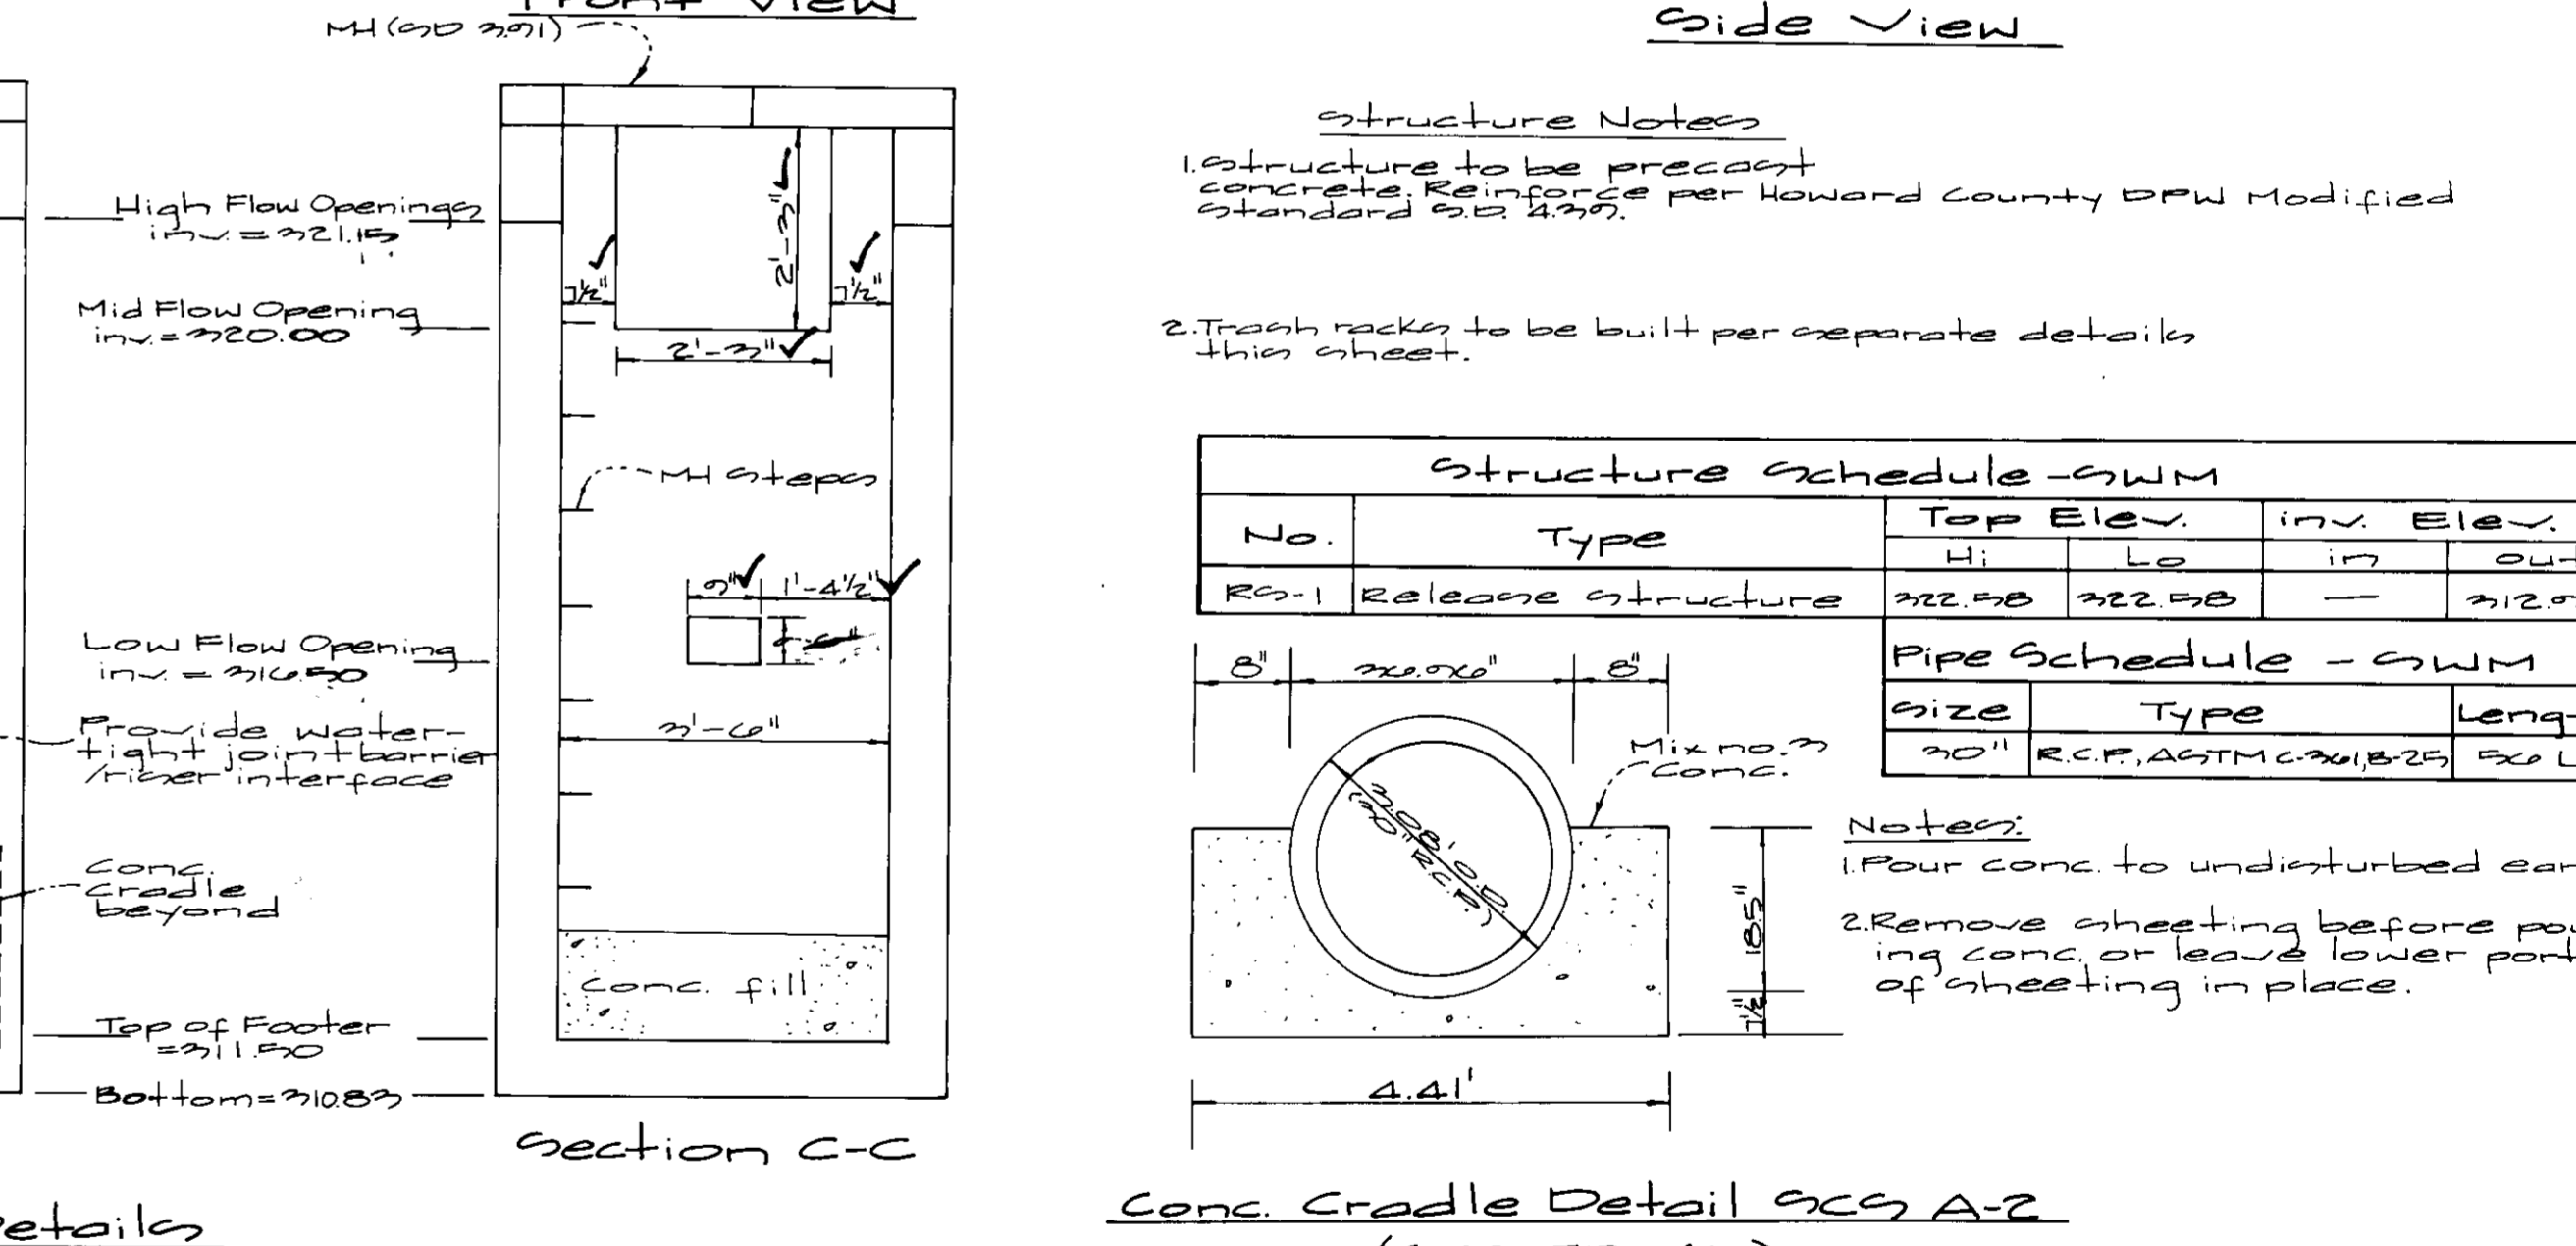 Front View
MH (SD 3.91)
High Flow Openings
inv. = 321.15
Mid Flow Opening
inv. = 320.00
2'-3"
7½"
7½"
2'-3"
MH Steps
9"
1'-4½"
Low Flow Opening
inv. = 316.50
3'-6"
Provide water-
tight joint barrier
/riser interface
Conc.
Cradle
beyond
Conc. fill
Top of Footer
=311.50
Bottom=310.83
Section C-C
etails
Side View
Structure Notes
1. Structure to be precast
concrete. Reinforce per Howard County DPW Modified
Standard S.D. 4.39.
2. Trash racks to be built per separate details
this sheet.
Structure Schedule-SWM
No. Type Top Elev. inv. Elev.
Hi Lo in out
RS-1 Release Structure 322.58 322.58 — 312.9
Pipe Schedule - SWM
Size Type Leng
30" R.C.P., ASTM C-361, B-25 56 L
8" 36.96" 8"
Mix no. 3
Conc.
3.08' O.D.
(30" R.C.P.)
18.5"
7½"
4.41'
Notes:
1. Pour conc. to undisturbed ear
2. Remove sheeting before pou
ing conc. or leave lower port
of sheeting in place.
Conc. Cradle Detail SCS A-2